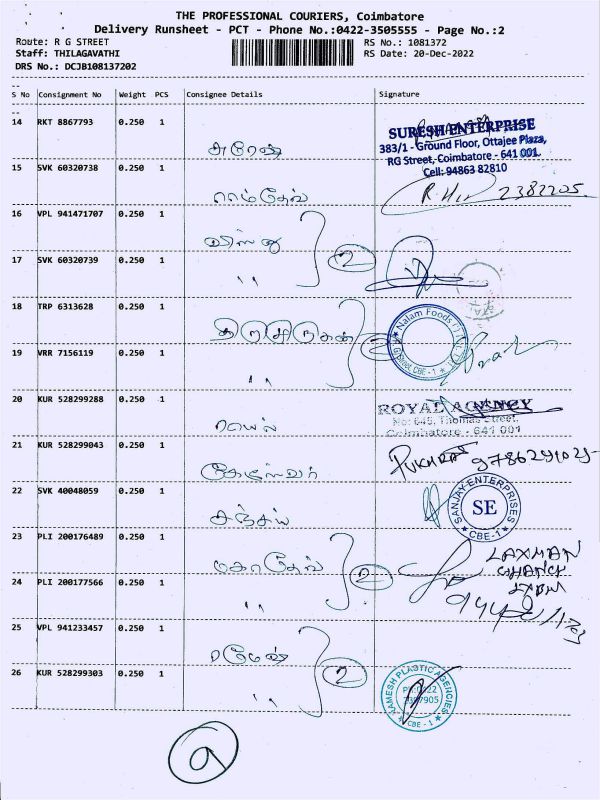 THE PROFESSIONAL COURIERS, Coimbatore
Delivery Runsheet - PCT - Phone No.:0422-3505555 - Page No.:2
Route: R G STREET
RS No.: 1081372
Staff: THILAGAVATHI
RS Date: 20-Dec-2022
DRS No.: DCJB108137202
S No Consignment No Weight PCS Consignee Details Signature
14 RKT 8867793 0.250 1
சுரேஷ்
SURESH ENTERPRISE
383/1 - Ground Floor, Ottajee Plaza,
RG Street, Coimbatore - 641 001.
Cell: 94863 82810
15 SVK 60320738 0.250 1
ராம்தேவ்
2382205
16 VPL 941471707 0.250 1
2
17 SVK 60320739 0.250 1
''
18 TRP 6313628 0.250 1
Nalam Foods
CBE - 1
2
19 VRR 7156119 0.250 1
''
20 KUR 528299288 0.250 1
ராயல்
ROYAL AGENCY
No: 645, Thomas Street,
Coimbatore - 641 001
21 KUR 528299043 0.250 1
PUKHRAJ
22 SVK 40048059 0.250 1
சஞ்சய்
SANJAY ENTERPRISES
SE
CBE-1
23 PLI 200176489 0.250 1
மகாதேவ்
2
LAXMAN
24 PLI 200177566 0.250 1
''
25 VPL 941233457 0.250 1
ரமேஷ்
2
26 KUR 528299303 0.250 1
''
RAMESH PLASTIC AGENCIES
CBE - 1